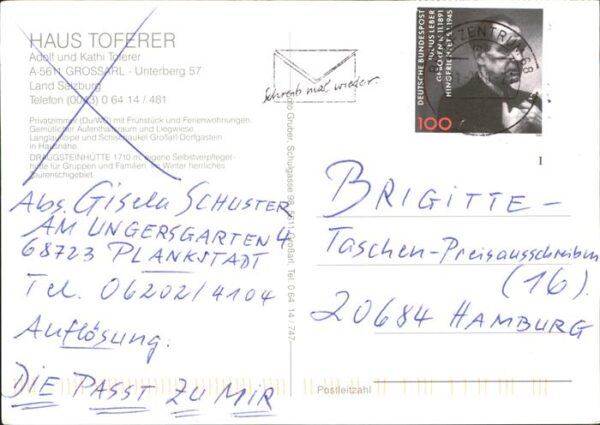 HAUS TOFERER
Adolf und Kathi Toferer
A-5611 GROSSARL · Unterberg 57
Land Salzburg
Telefon (0043) 0 64 14 / 481
Privatzimmer (Du/WC) mit Frühstück und Ferienwohnungen.
Gemütlicher Aufenthaltsraum und Liegwiese
Langlaufloipe und Schischaukel Großarl-Dorfgastein
in Hausnähe.
DRAUGSTEINHÜTTE 1710 m, eigene Selbstverpfleger-
hütte für Gruppen und Familien. Im Winter herrliches
Tourenschigebiet.
Abs. Gisela SCHUSTER
AM UNGERSGARTEN 4
68723 PLANKSTADT
Tel. 06202/4104
Auflösung:
DIE PASST ZU MIR
Schreib mal wieder.
Gruber, Schulgasse 98, 5611 Großarl, Tel. 0 64 14 / 747
DEUTSCHE BUNDESPOST
JULIUS LEBER
100
ZENTRUM 68
1
BRIGITTE-
Taschen-Preisausschreiben
(16).
20684 HAMBURG
Postleitzahl